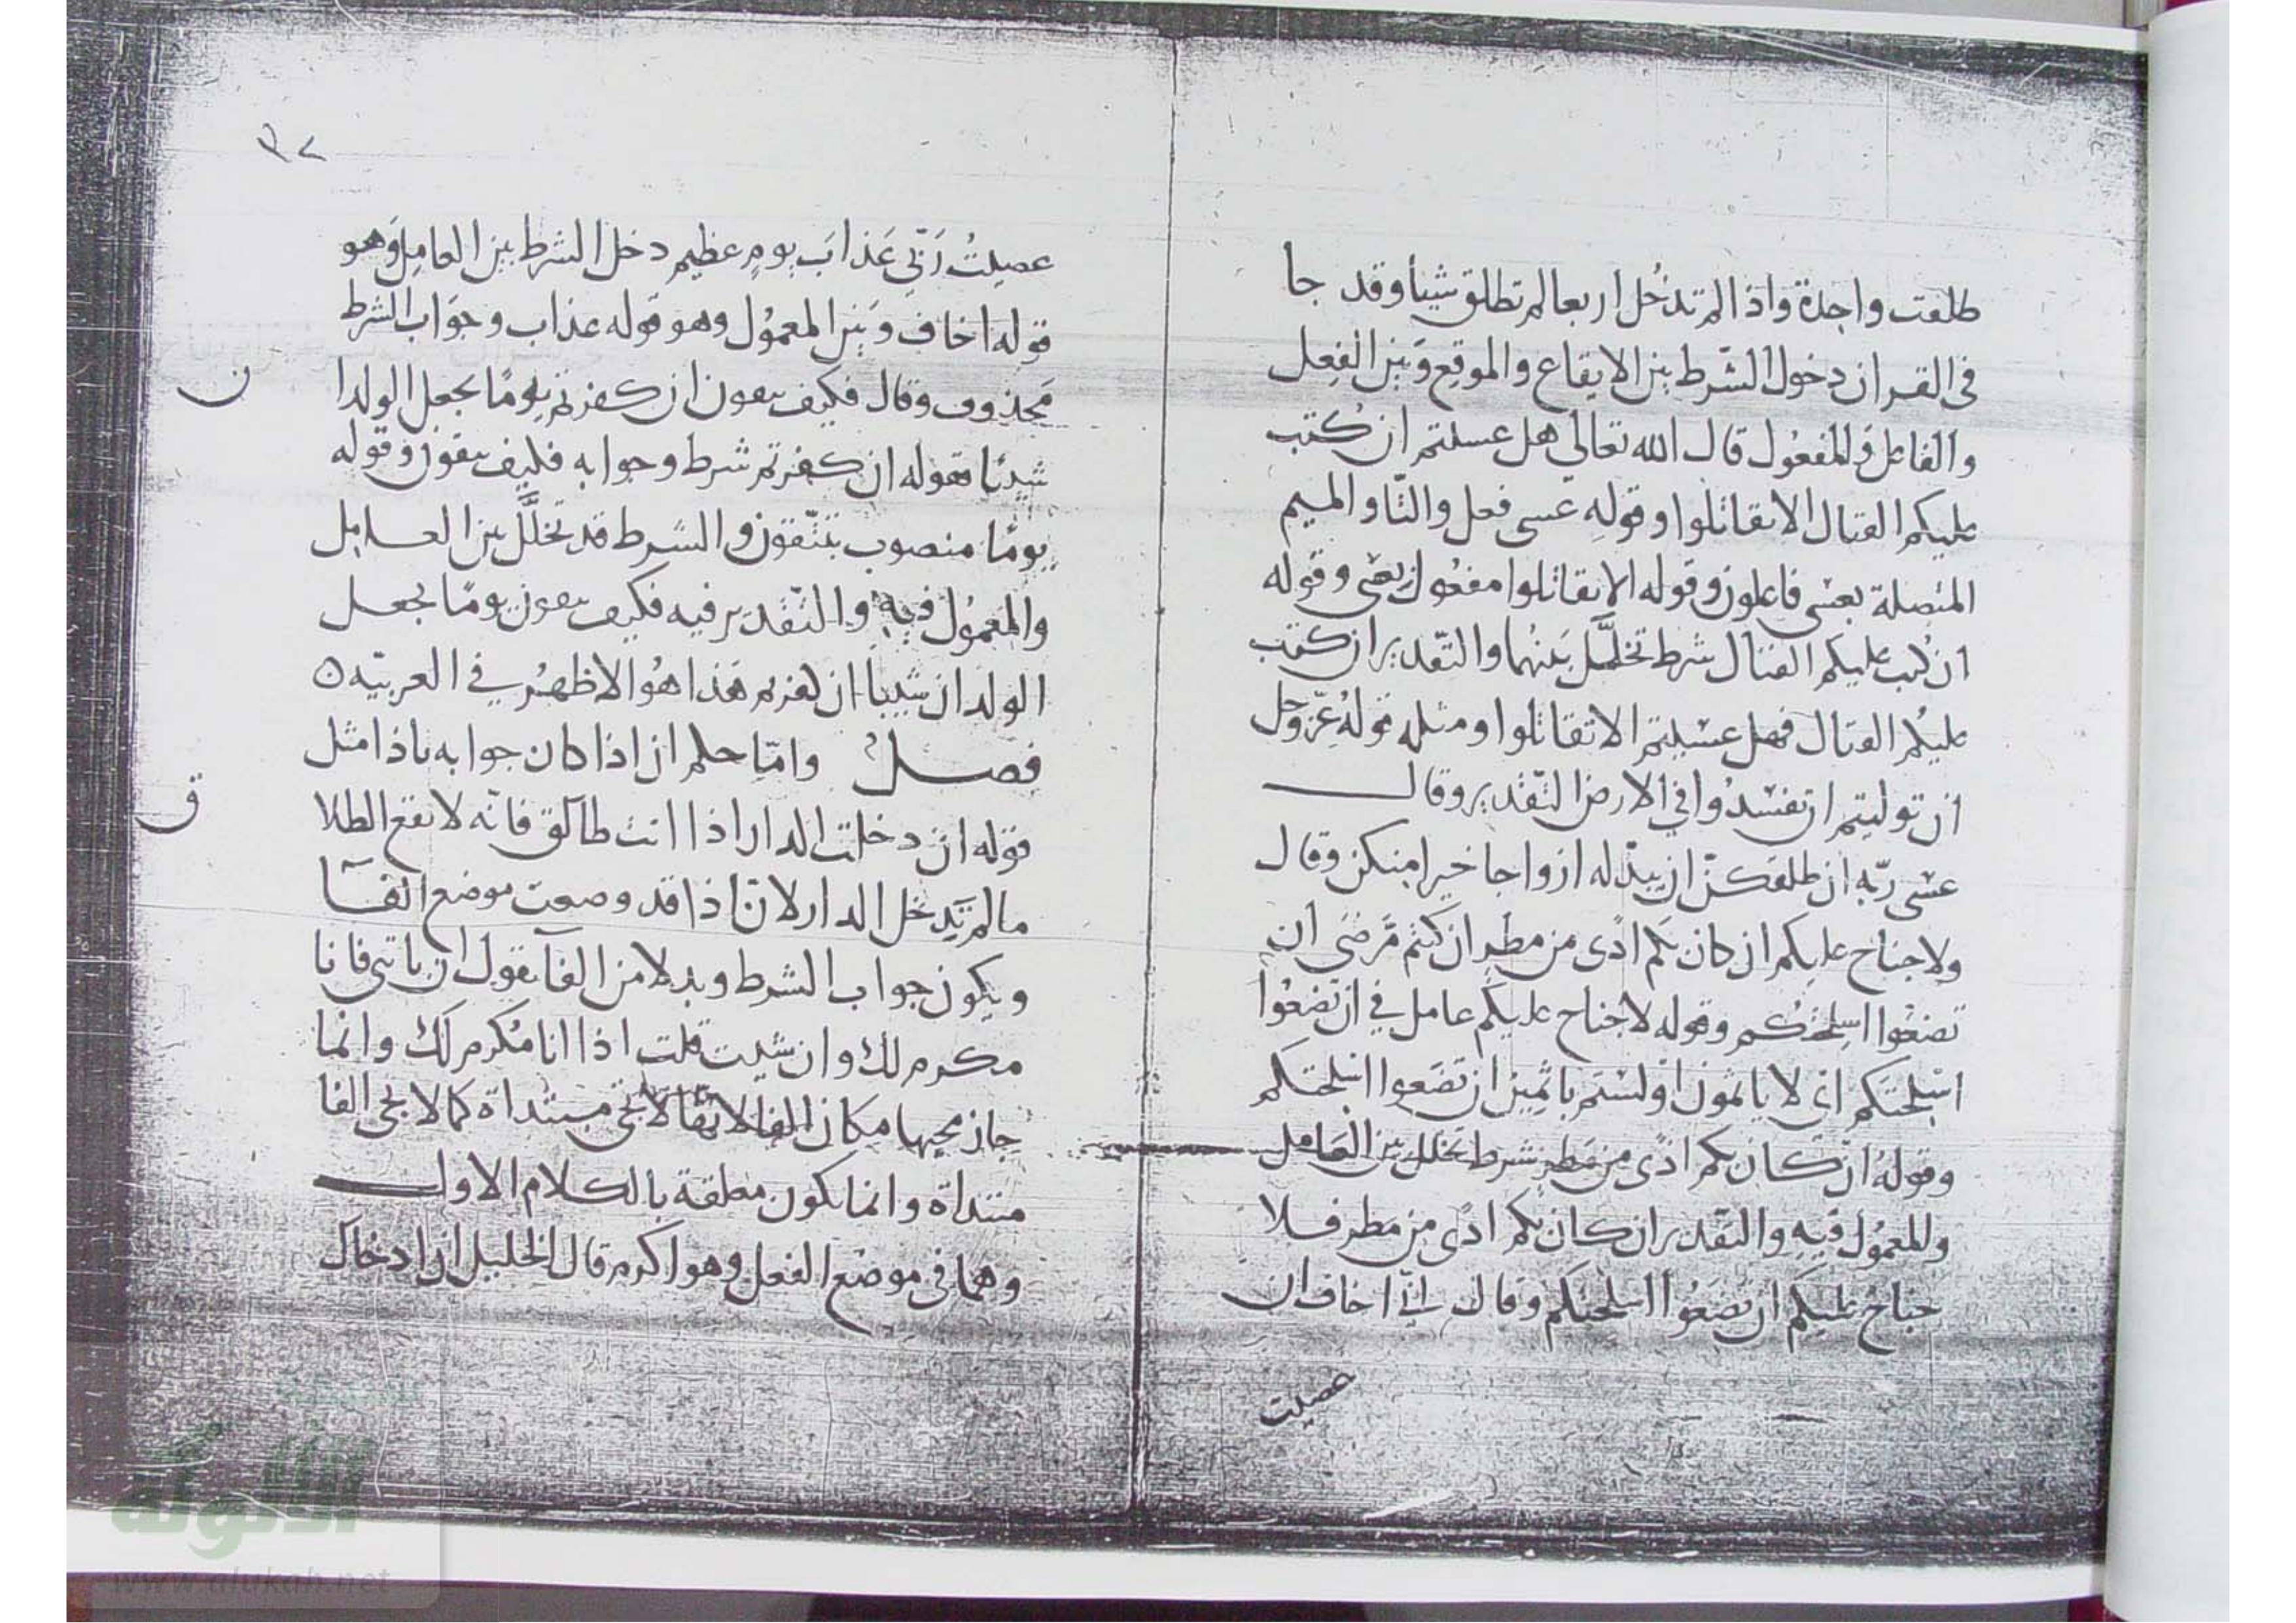 طلقت واحدة واذا لم تدخل اربعا لم تطلق شيأ وقد جا
فى القران دخول الشرط بين الايقاع والموقع وبين الفعل
والفاعل والمفعول قال الله تعالى هل عسيتم ان كتب
عليكم القتال الا تقاتلوا وقوله عسى فعل والتا والميم
المتصلة بعسى فاعلون وقوله الا تقاتلوا مفعول بعسى وقوله
ان كتب عليكم القتال شرط تخلل بينهما والتقدير ان كتب
عليكم القتال فهل عسيتم الا تقاتلوا ومثله قوله عز وجل
ان توليتم ان تفسدوا في الارض التقدير وقال
عسى ربه ان طلقكن ان يبدله ازواجا خيرا منكن وقال
ولا جناح عليكم ان كان بكم اذى من مطر ان كنتم مرضى ان
تضعوا اسلحتكم وقوله لا جناح عليكم عامل في ان تضعوا
اسلحتكم اى لا ياثمون او لستم باثمين ان تضعوا اسلحتكم
وقوله ان كان بكم اذى من مطر شرط تخلل بين العامل
والمعمول فيه والتقدير ان كان بكم اذى من مطر فلا
جناح عليكم ان تضعوا اسلحتكم وقال انى اخاف ان
عصيت
٣٢
عصيت ربى عذاب يوم عظيم دخل الشرط بين العامل وهو
قوله اخاف وبين المعمول وهو قوله عذاب وجواب الشرط
محذوف وقال فكيف تتقون ان كفرتم يوما يجعل الولدا
ن
شيبا فقوله ان كفرتم شرط وجوابه فكيف تتقون وقوله
يوما منصوب بتتقون والشرط قد تخلل بين العامل
والمعمول فيه والتقدير فيه فكيف تتقون يوما يجعل
الولدان شيبا ان كفرتم هذا هو الاظهر في العربيه ٥
فصل واما حكم ان اذا كان جوابه باذا مثل
قوله ان دخلت الدار اذا انت طالق فانه لا يقع الطلا
ق
مالم تدخل الدار لان اذا قد وضعت موضع الفا
ويكون جواب الشرط وبدلا من الفا تقول ان ياتنى فانا
مكرم لك وان شيت قلت اذا انا مكرم لك وانما
جاز مجيها مكان الفا لانها لا تجى مبتداة كما لا تجى الفا
مبتداة وانما تكون معلقة بالكلام الاول
وهما فى موضع الفعل وهو اكرم قال الخليل ان ادخال
الألوكة
www.alukah.net